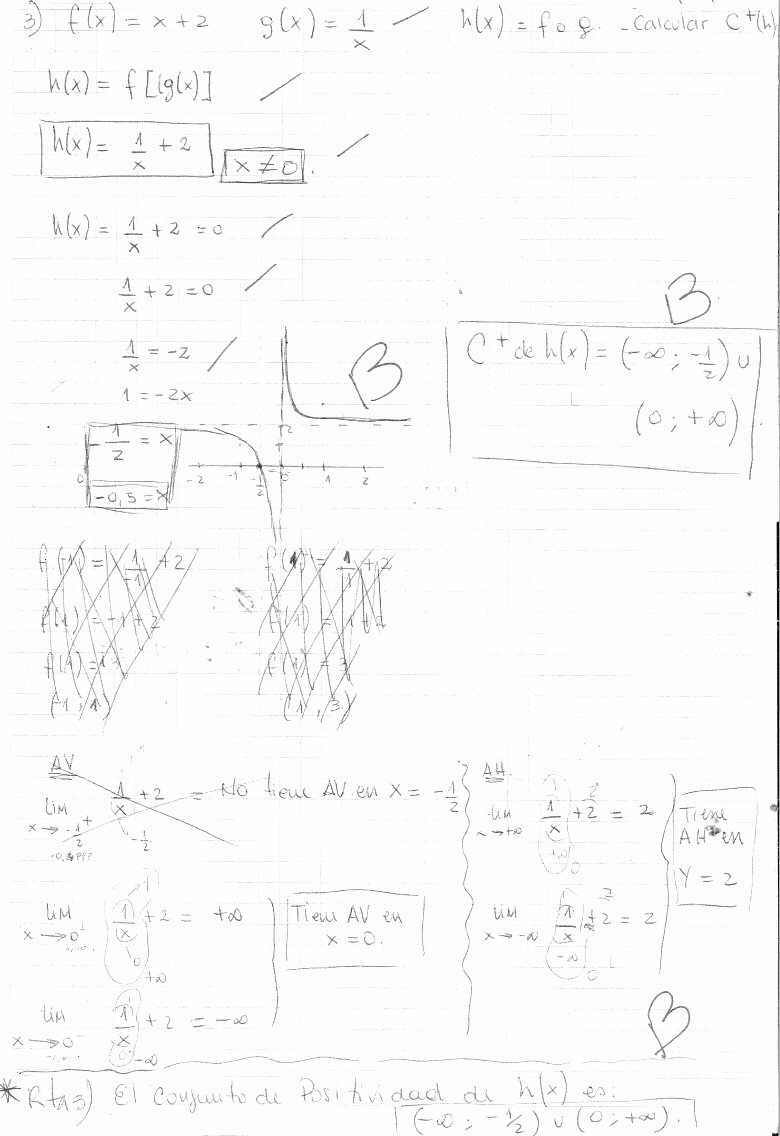 3) f(x) = x + 2   g(x) = 1/x   h(x) = f o g. - Calcular C⁺(h)
h(x) = f [g(x)]
h(x) = 1/x + 2   x ≠ 0.
h(x) = 1/x + 2 = 0
1/x + 2 = 0
1/x = -2
1 = -2x
-1/2 = x
-0,5 = x
B
B
C⁺ de h(x) = (-∞ ; -1/2) ∪
(0 ; +∞)
2
-2 -1 -1/2 0 1 2
f(-1) = 1/-1 + 2
f(1) = 1/1 + 2
f(1) = -1 + 2
f(1) = 1 + 2
f(1) = 3
(1 , 3)
AV
LIM x → -1/2⁺ 1/x + 2 = No tiene AV en x = -1/2
-1/2
LIM x → 0⁺ 1/x + 2 = +∞
0
+∞
LIM x → 0⁻ 1/x + 2 = -∞
0⁻ -∞
Tiene AV en
x = 0.
AH
LIM x → +∞ 1/x + 2 = 2
+∞ 0
2
LIM x → -∞ 1/x + 2 = 2
-∞ 0
2
Tiene
AH en
Y = 2
B
* Rta 3) El conjunto de Positividad de h(x) es:
(-∞ ; -1/2) ∪ (0 ; +∞).